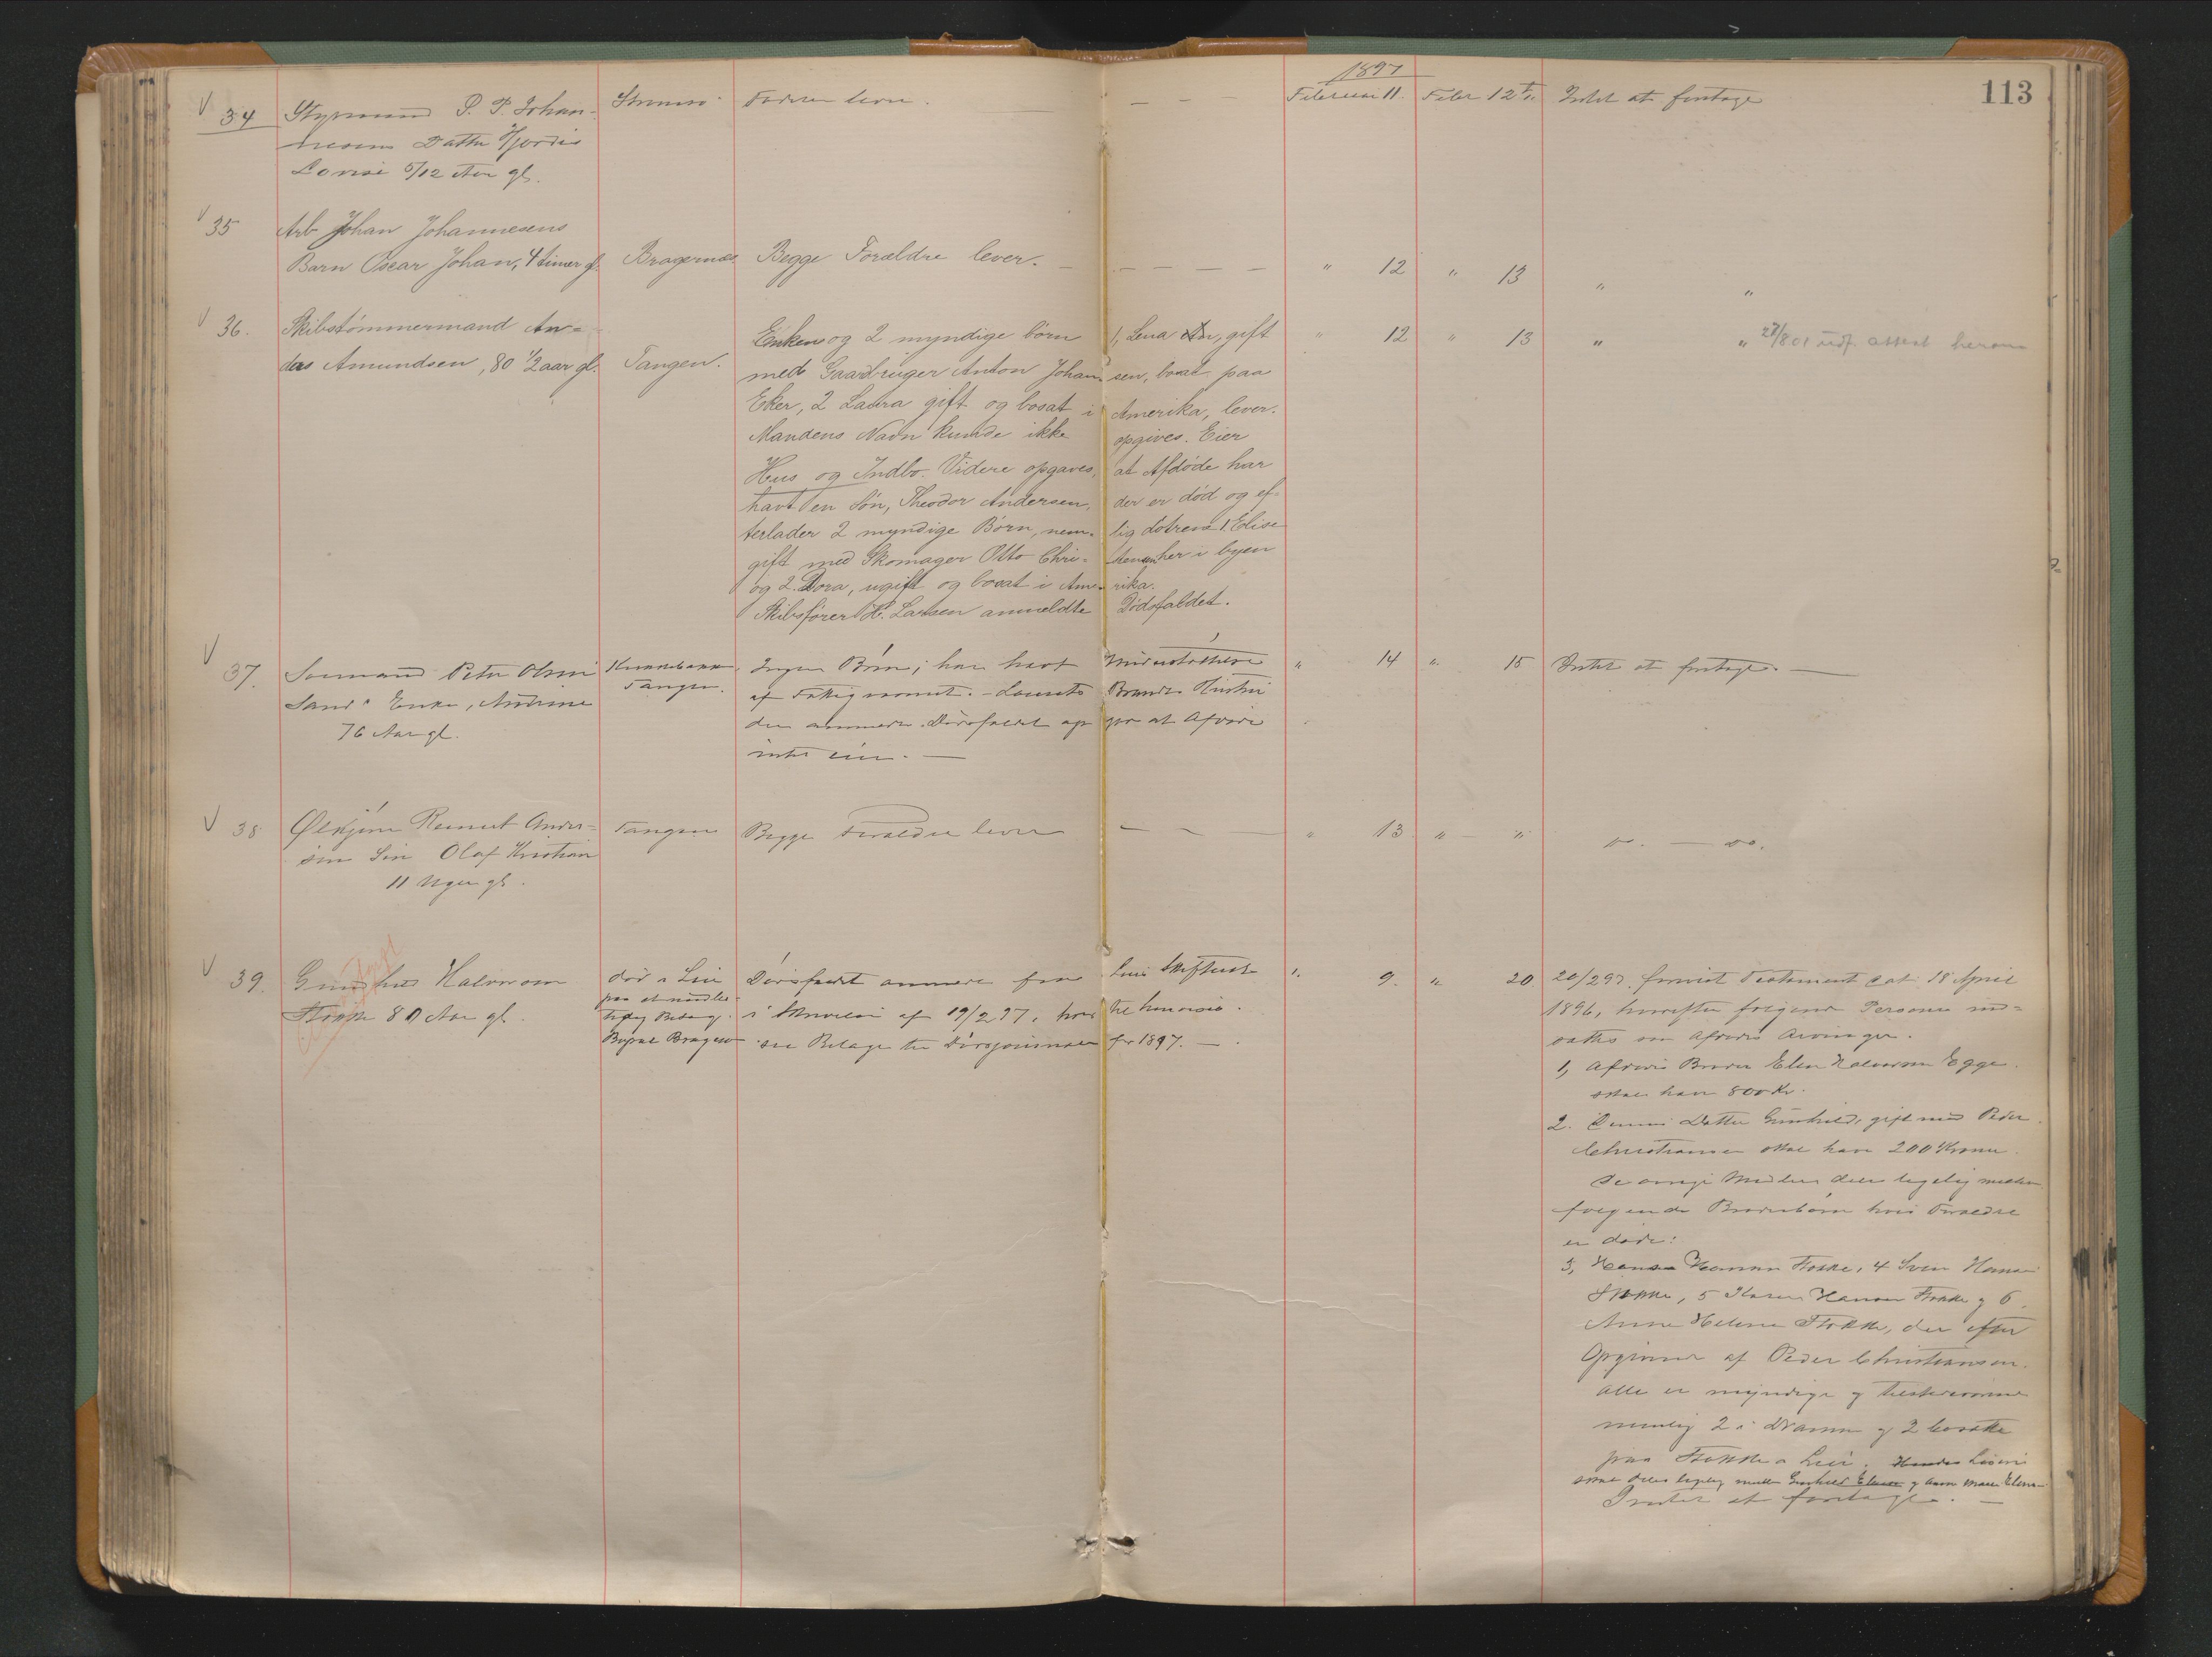 113
1897
34 Styrmand P. P. Johan- Strømsø Faderen lever. Februar 11. Febr 12 Intet at foretage
nesens Datter Hjørdis
Lovise 5/12 Aar gl.
35 Arb Johan Johannesens
Barn Oscar Johan, 4 timer gl. Bragernæs Begge Forældre lever. " 12 " 13 " "
36. Skibstømmermand An-
ders Amundsen, 80 1/2 aar gl. Tangen. " 12 " 13 " " 27/8 01 udf. attest herom
Enken og 2 myndige børn 1, Lena, gift
med Gaardbruger Anton Johansen, bosat paa
Eker, 2 Laura gift og bosat i Amerika, lever.
Mandens Navn kunde ikke opgives. Eier
Hus og Indbo. Videre opgaves, at Afdøde har
havt en Søn, Theodor Andersen, der er død og ef-
terlader 2 myndige Børn, nem- lig døtrene 1 Elise
gift med Skomager Otto Chri- stensen her i byen
og 2. Dora, ugift og bosat i Ame- rika.
Skibsfører H. Larsen anmeldte Dødsfaldet.
37. Sømand Peter Olsen Tangen. Ingen Børn; har havt Understøttelse " 14 " 15 Intet at foretage.
Sands Enke, Andrine af Fattigvæsenet. - Brandts Hustru
76 Aar gl. der anmeldte Dødsfaldet op gav at Afdøde
intet eier.
38 Reinert Ander- Tangen Begge Forældre lever " 13 " " do. do.
sen Søn Olaf Kristian
11 Uger gl.
39. Gunhild Halvorsen død i Lier Dødsfaldet anmeldt fra Lier Skifteret " 9. " 20
Stokke 80 Aar gl. i Skrivelse af 19/2 97, hvortil henvises.
Bopæl Bragernæs se Bilage til Dødsjournalen for 1897.
20/2 97. fremvist Testament dat. 18 April
1896, hvorefter følgende Personer ind-
sættes som Afdødes Arvinger.
1, Afdødes Broder Elen Halvorsen Egge
skal have 800 Kr.
2. Dennes Datter Gunhild, gift med Peder
Christiansen skal have 200 Kroner.
De øvrige Midler deles ligelig mellem
følgende Broderbørn hvis Forældre
er døde:
3, Hansen Stokke, 4 Sven Hansen
Stokke, 5 Karen Hansen Stokke og 6
Anne Helene Stokke, der efter
Opgivende af Peder Christiansen
alle er myndige og tilstedeværende
nemlig 2 i Drammen og 2 bosatte
paa Stokke i Lier.
skal deles ligelig mellem Gunhild og Anne Marie Elens
Intet at foretage.